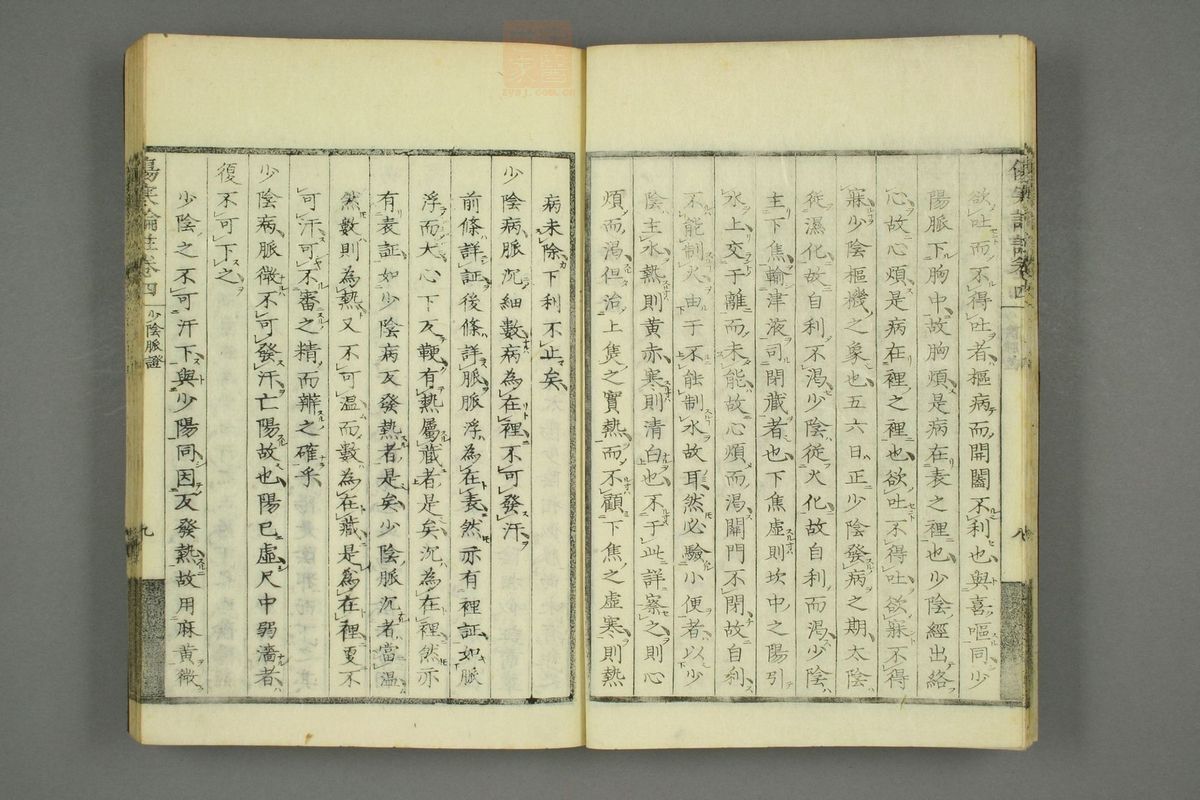 傷寒論註卷四
八
欲吐而不得吐者樞病而開闔不利也與喜嘔同少
陽脈下胸中故胸煩是病在表之裡也少陰經出絡
心故心煩是病在裡之裡也欲吐不得吐欲寐不得
寐少陰樞機之象也五六日正少陰發病之期太陰
從濕化故自利不渴少陰從火化故自利而渴少陰
主下焦輸津液司閉藏者也下焦虛則坎中之陽引
水上交于離而未能故心煩而渴關門不閉故自利
不能制火由于不能制水故耳然必驗小便者以少
陰主水熱則黃赤寒則清白也不于此詳察之則心
煩而渴但治上焦之實熱而不顧下焦之虛寒則熱
病未除下利不止矣
少陰病脈沉細數病為在裡不可發汗
前條詳証後條詳脈脈浮為在表然亦有裡証如脈
浮而大心下反鞕有熱屬藏者是矣沉為在裡然亦
有表証如少陰病反發熱者是矣少陰脈沉者當溫
然數則為熱又不可溫而數為在藏是為在裡更不
可汗可不審之精而辨之確乎
少陰病脈微不可發汗亡陽故也陽已虛尺中弱濇者
復不可下之
少陰之不可汗下與少陽同因反發熱故用麻黃微
傷寒論註卷四
少陰脈證
九